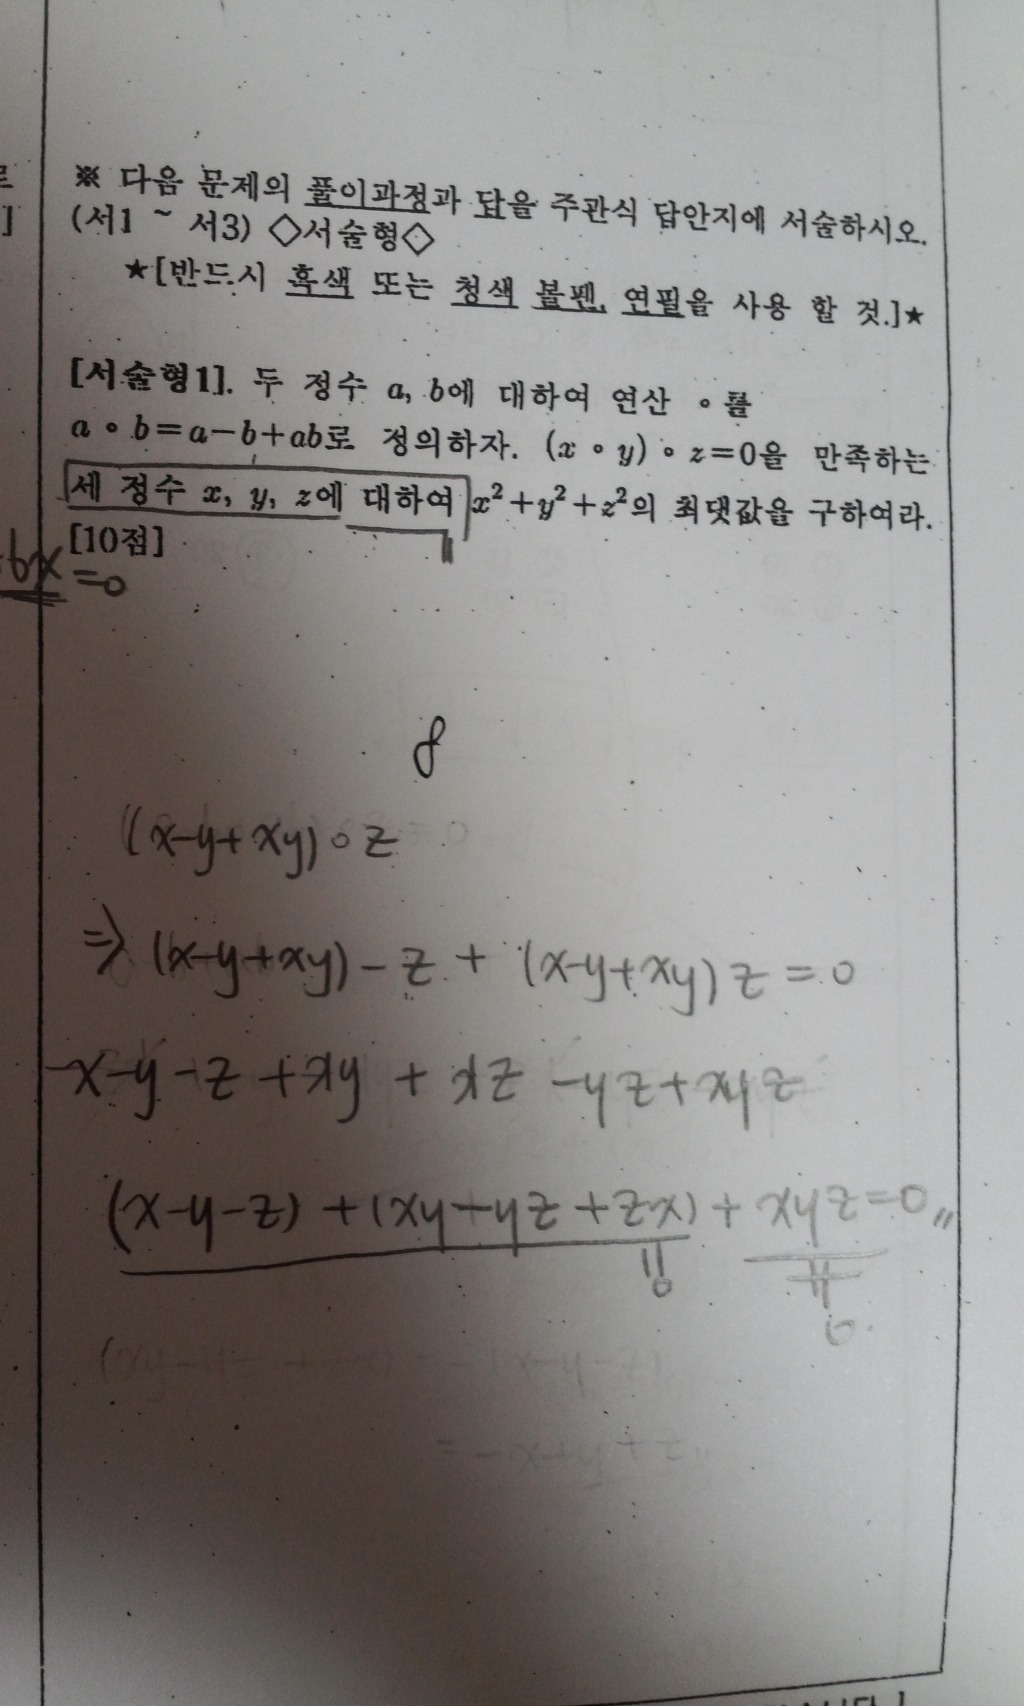 ※ 다음 문제의 풀이과정과 답을 주관식 답안지에 서술하시오.
(서1 ~ 서3) ◇서술형◇
★[반드시 흑색 또는 청색 볼펜, 연필을 사용 할 것.]★
[서술형1]. 두 정수 a, b에 대하여 연산 ∘를
a∘b=a-b+ab로 정의하자. (x∘y)∘z=0을 만족하는
세 정수 x, y, z에 대하여 x²+y²+z²의 최댓값을 구하여라.
[10점]
bx=0
8
(x-y+xy)∘z
⇒ (x-y+xy)-z+(x-y+xy)z=0
x-y-z+xy+xz-yz+xyz
(x-y-z)+(xy-yz+zx)+xyz=0〃